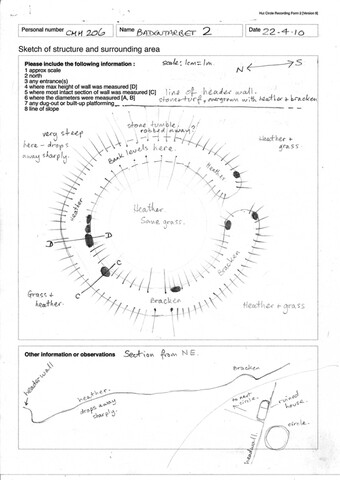 Hut Circle Recording Form 2 [Version 8]
Personal number CMH 206 Name BADENTARBET 2 Date 22-4-10
Sketch of structure and surrounding area
Please include the following information :
1 approx scale
2 north
3 any entrance(s)
4 where max height of wall was measured [D]
5 where most intact section of wall was measured [C]
6 where the diameters were measured [A, B]
7 any dug-out or built-up platform
8 line of slope
scale; 1cm=1m.
N S
line of header wall.
stone+turf, overgrown with heather + bracken
very steep
here - drops
away sharply.
stone tumble,
robbed away?
Bank levels here.
Heather
Heather +
grass
heather
Heather
Some grass.
D D
C
C
Bracken
Bracken
Grass +
heather.
Heather + grass
Other information or observations Section from N.E.
headerwall
heather.
drops away
sharply.
Bracken
circle.
ruined
house.
headwall
circle.